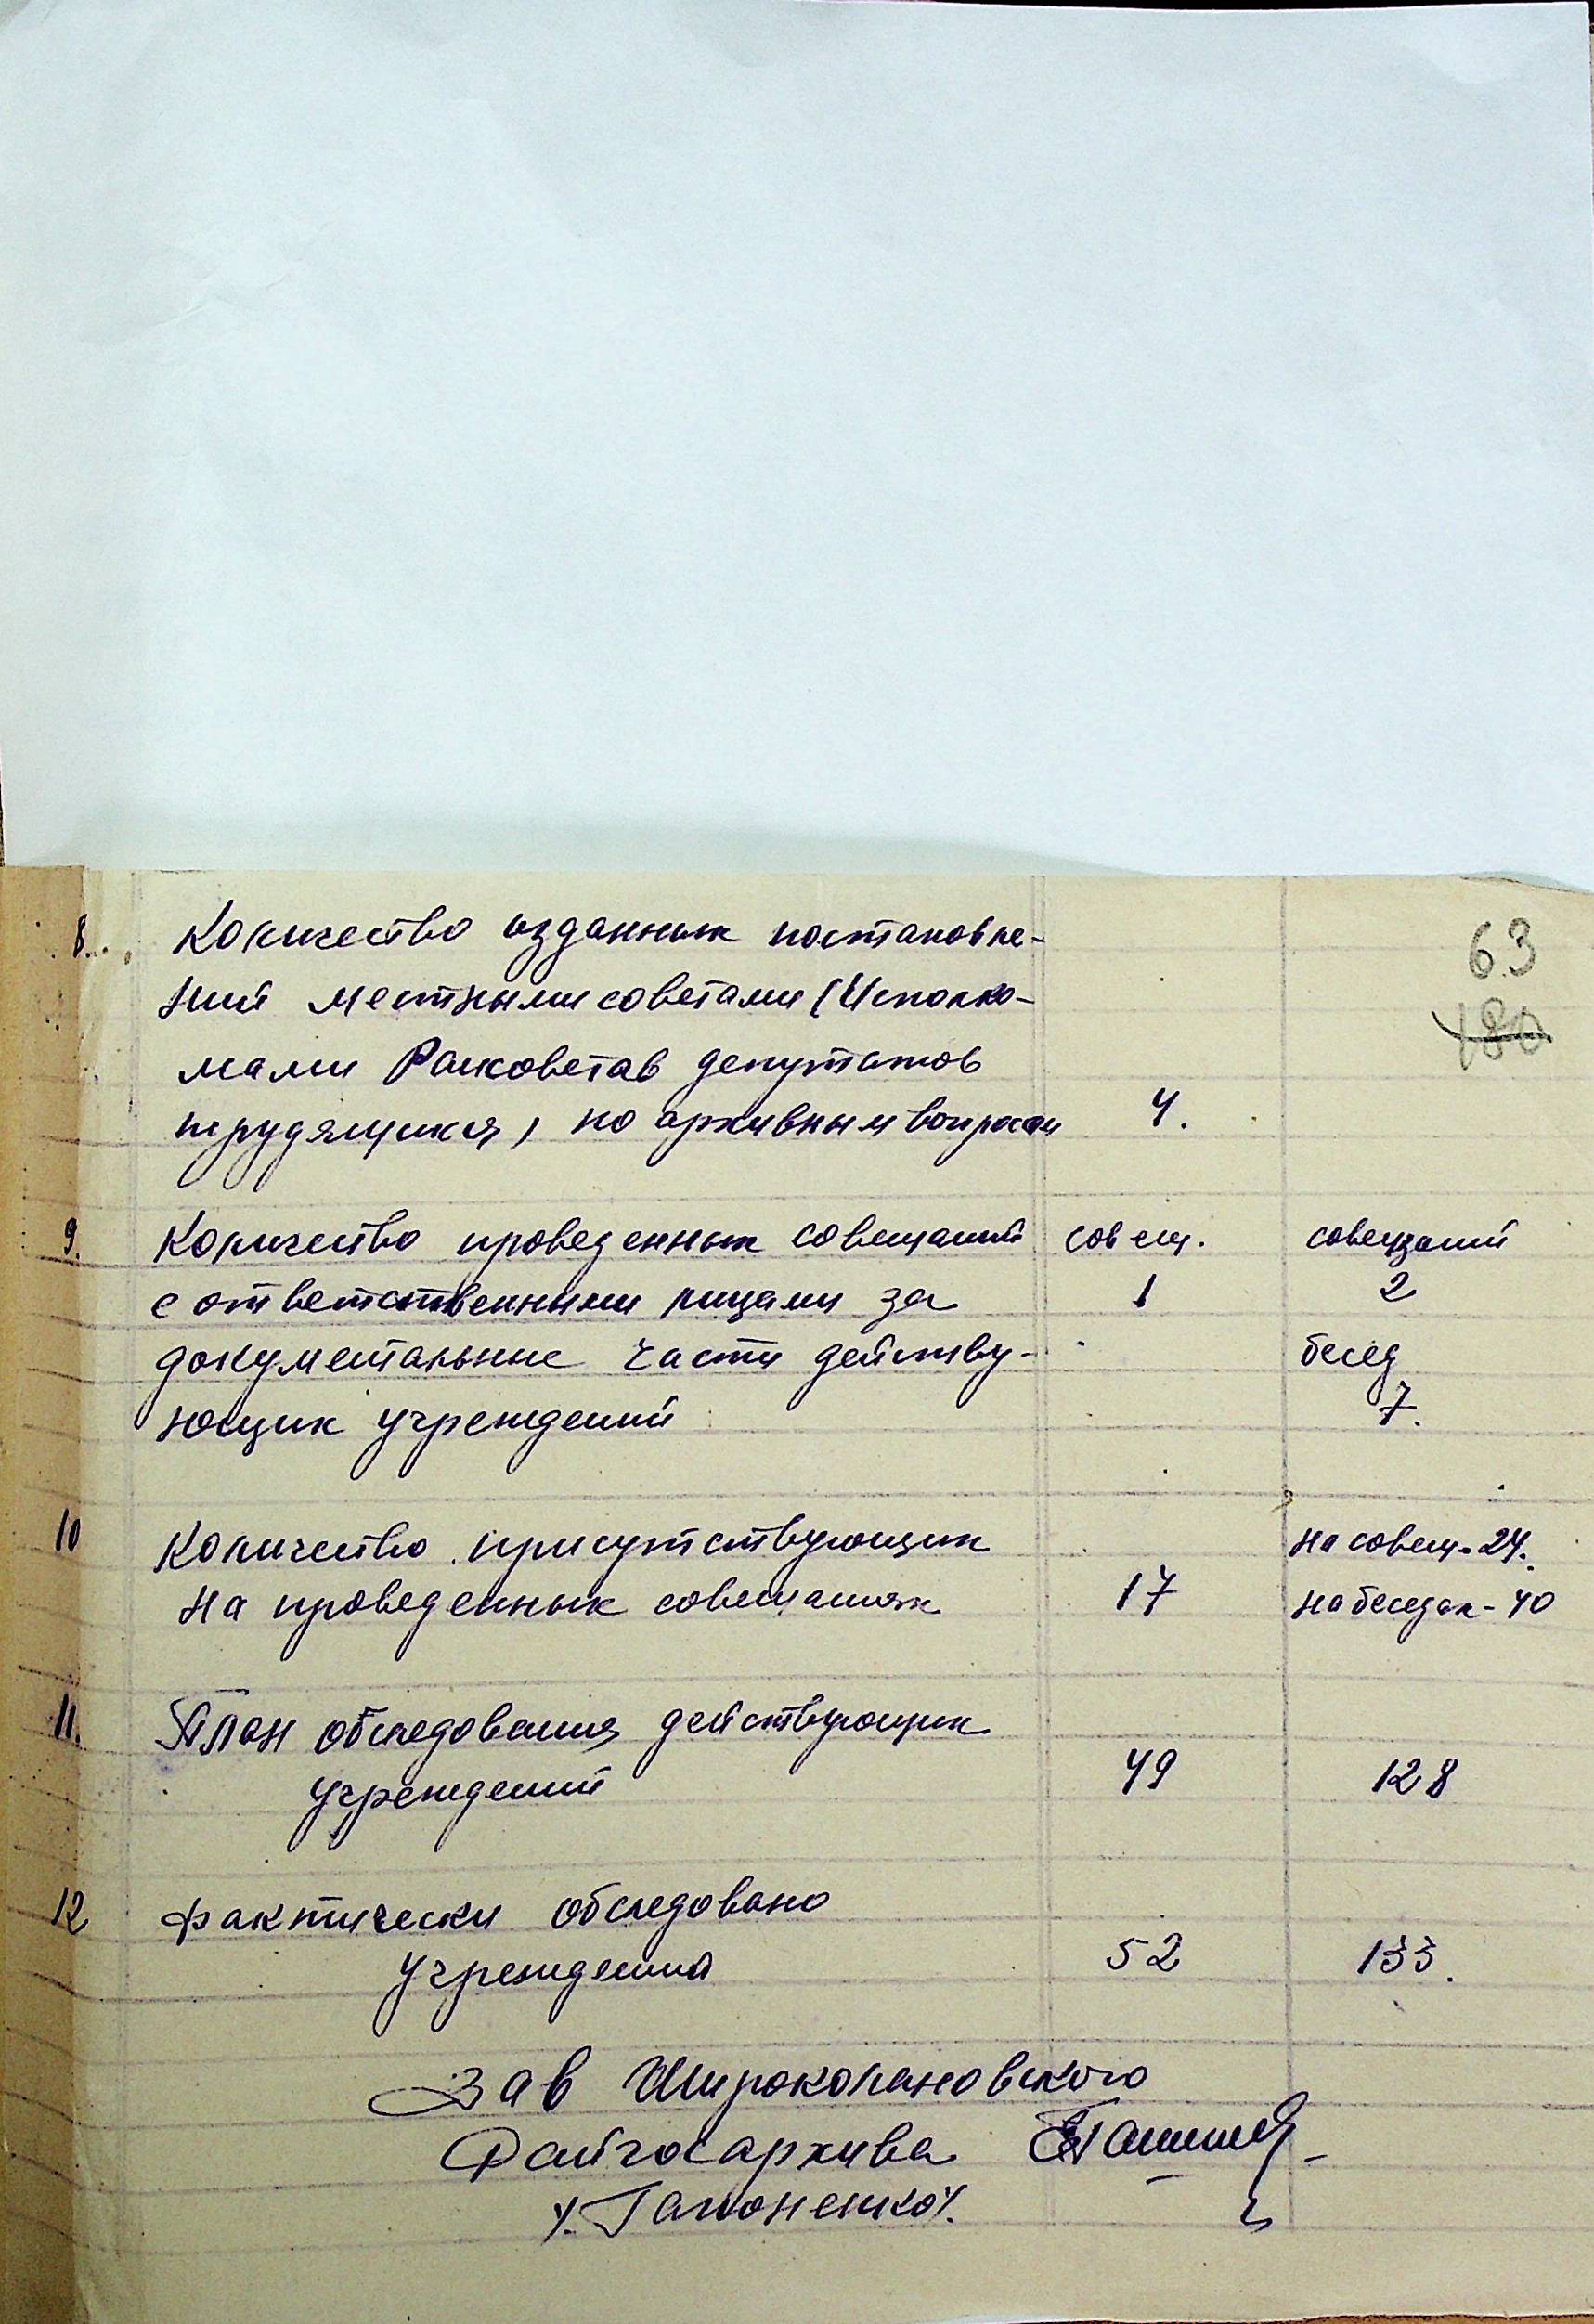 63
180
8. Количество изданных постановле-
ний местными советами (Исполко-
мами Райсоветав депутатов
трудящихся, по архивным вопросам 4.
9. Количество проведенных совещаний совещ. совещаний
с ответственными лицами за 1 2
документальные части действу- бесед
ющих учреждений 7.
10 Количество присутствующих на совещ. - 24.
на проведенных совещаниях 17 на беседах - 40
11. План обследования действующих
учреждений 49 128
12 Фактически обследовано
учреждений 52 133.
Зав Широколановского
Райгосархива
/. Гапоненко/.